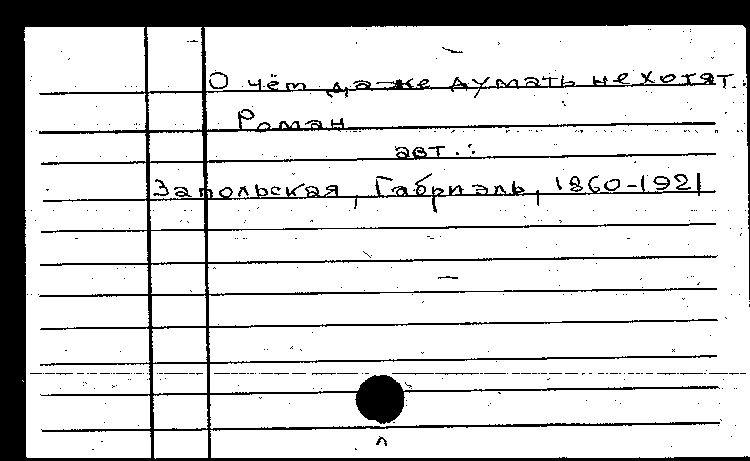 О чём даже думать не хотят.
Роман
авт.:
Запольская, Габриэль, 1860-1921